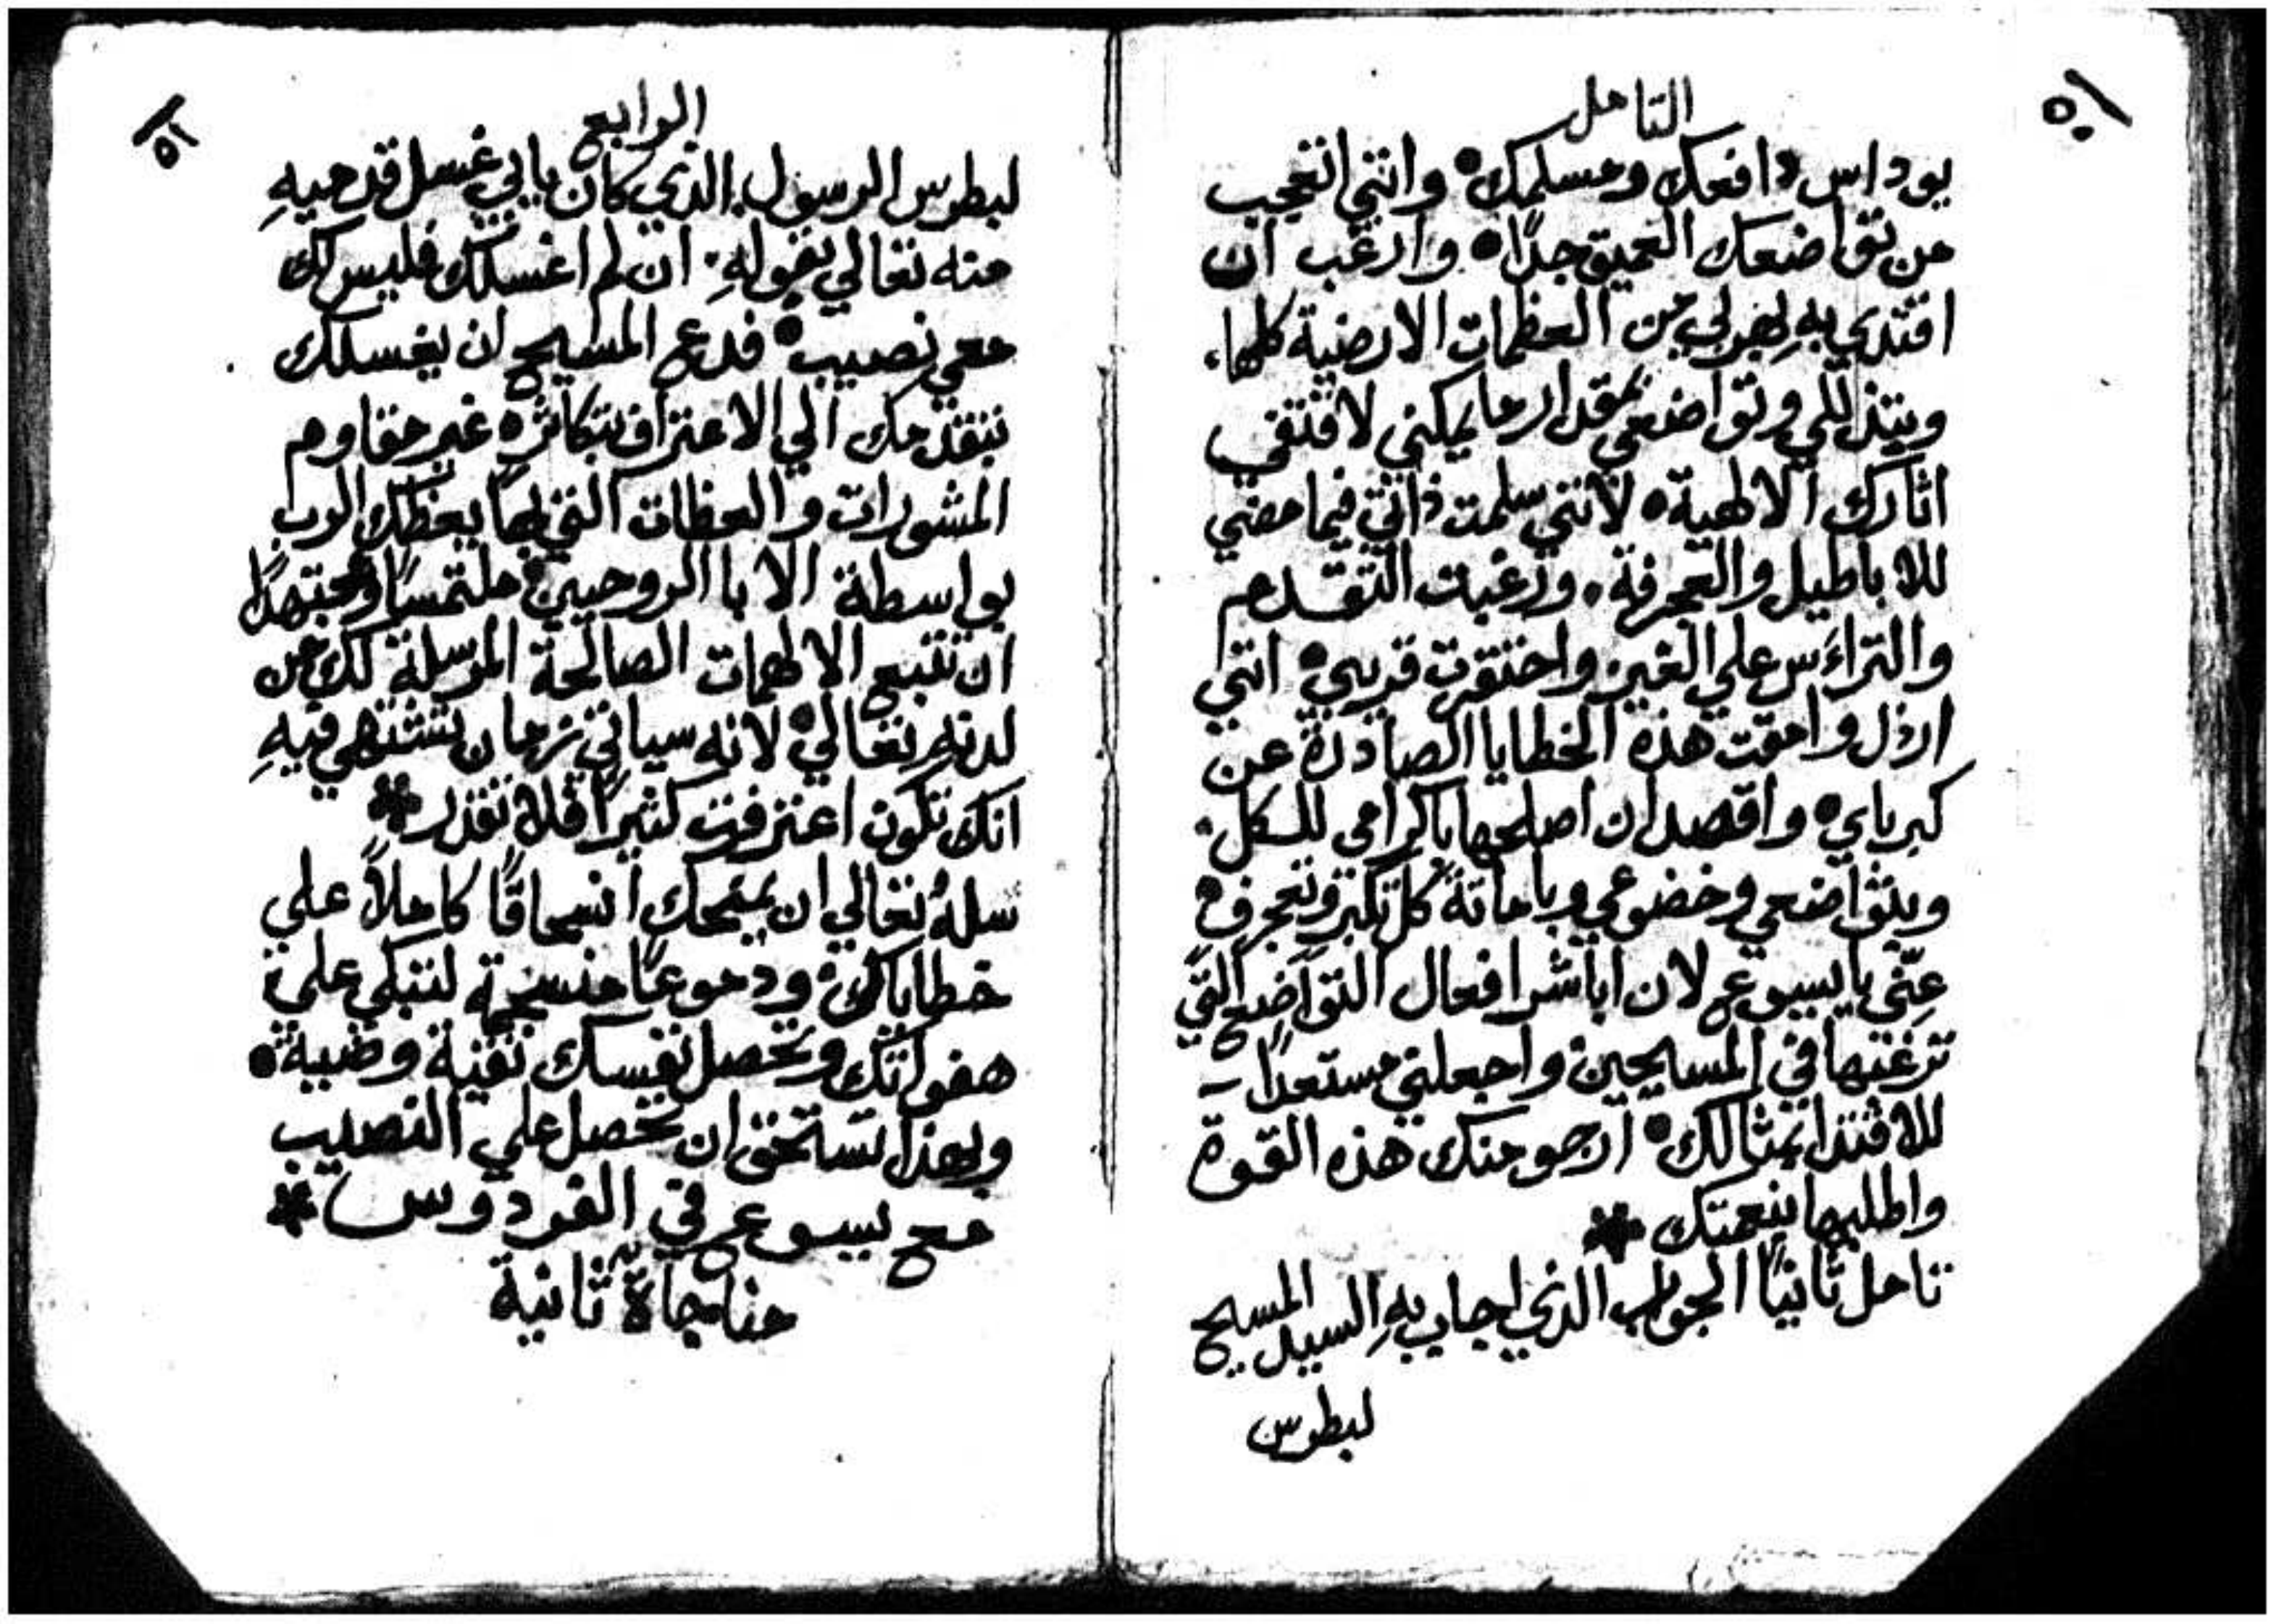 التامل
١٥٠
يوداس دافعك ومسلمك• وانني اتعجب
من تواضعك العميق جدًا• وارغب ان
اقتدي به لهربي من العظمات الارضية كلها،
وبتذللي وتواضعي بمقدار ما يمكني لاقتفي
اثارك الالهية• لانني سلمت ذاتي فيما مضي
للاباطيل والعجرفة، ورغبت التقدم
والتراءس علي الغير واحتقرت قريبي• انني
ارذل وامقت هذه الخطايا الصادرة عن
كبرياي• واقصد ان اصلحها باكرامي للكل•
وبتواضعي وخضوعي وباماتة كل تكبر وتعجرف•
عنّي يا يسوع لان اباشر افعال التواضع التي
ترغبها في المسيحيين واجعلني مستعدًا
للاقتدا بمثالك• ارجو منك هذه القوة
واطلبها بنعمتك *
تامل ثانيًا الجواب الذي اجاب بهِ السيد المسيح
لبطرس
الرابع
١٥١
لبطرس الرسول الذي كان يابي غسل قدميهِ
منه تعالي بقولهِ• ان لم اغسلك فليس لك
معي نصيب• فدع المسيح ان يغسلك
بتقدمك الي الاعتراف بتكاثر• غير مقاوم
المشورات والعظات التي بها يعظك الرب
بواسطة الابا الروحيين• ملتمسًا ومجتهدًا
ان تتبع الالهامات الصالحة المرسلة لك من
لدنهِ تعالي• لانه سياتي زمان تشتهي فيهِ
انك تكون اعترفت كثيرًا فلا تقدر *
سلهُ تعالي ان يمنحك انسحاقًا كاملاً علي
خطاياك• ودموعًا منسجمة لتبكي علي
هفواتك وتحصل نفسك نقية وضية•
وبهذا تستحق ان تحصل علي النصيب
مع يسوع في الفردوس *
مناجاة ثانية